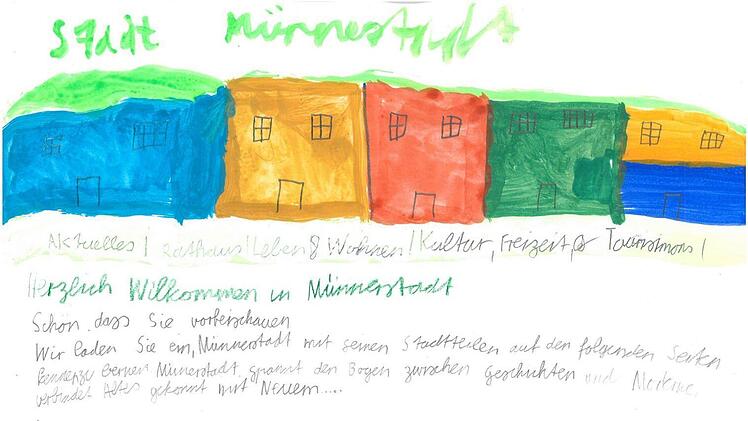 Stadt Münnestadt
Aktuelles | Rathaus | Leben & Wohnen | Kultur, Freizeit, & Tourismons |
Herzlich Willkommen in Münnerstadt
Schön, dass Sie vorbeischauen
Wir laden Sie ein, Münnerstadt mit seinen Stadtteilen auf den folgenden Seiten
Münnerstadt spannt den Bogen zwischen Geschichten und
verbindet Altes gekonnt mit Neuem....